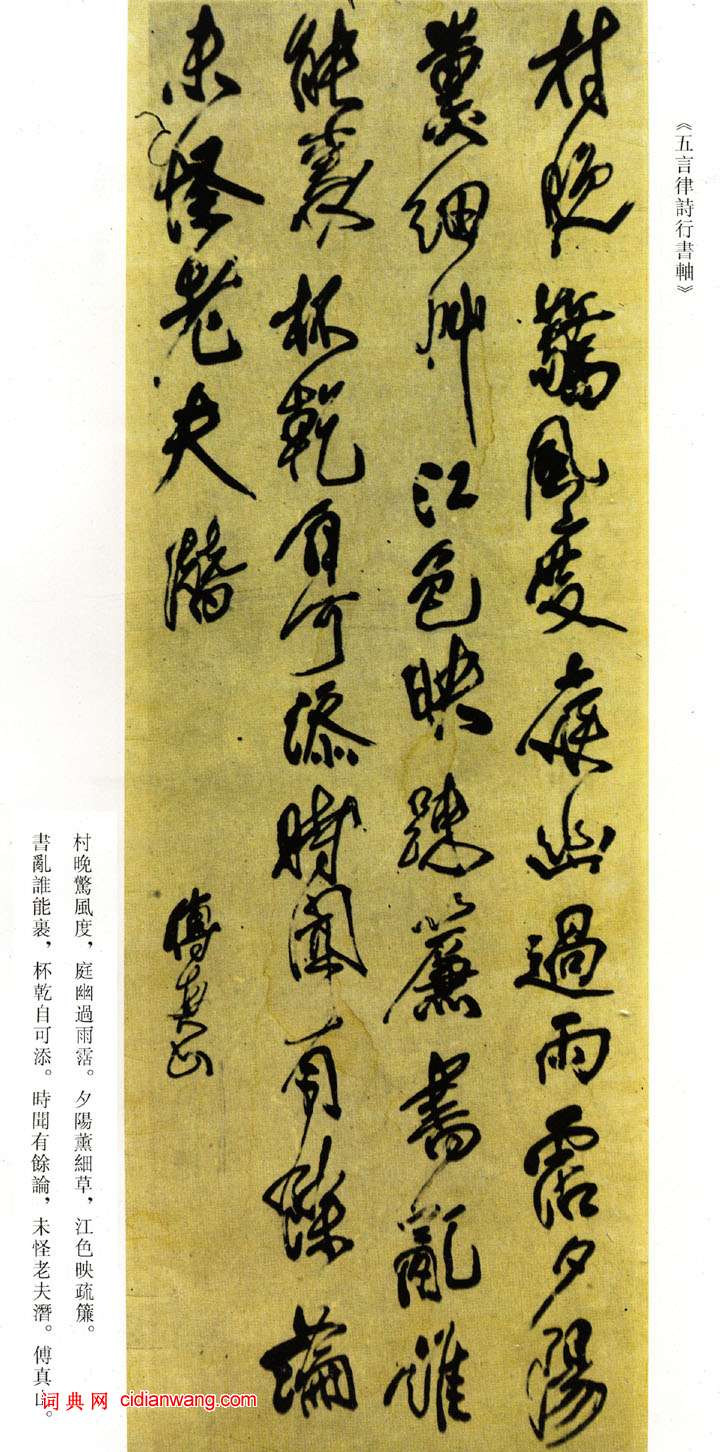 《五言律詩行書軸》
村晚驚風度庭幽過雨霑夕陽
薰細草江色映疏簾書亂誰
能裹杯乾自可添時聞有餘論
未怪老夫潛
傅真山
村晚驚風度，庭幽過雨霑。夕陽薰細草，江色映疏簾。
書亂誰能裹，杯乾自可添。時聞有餘論，未怪老夫潛。傅真山。
词典网 cidianwang.com